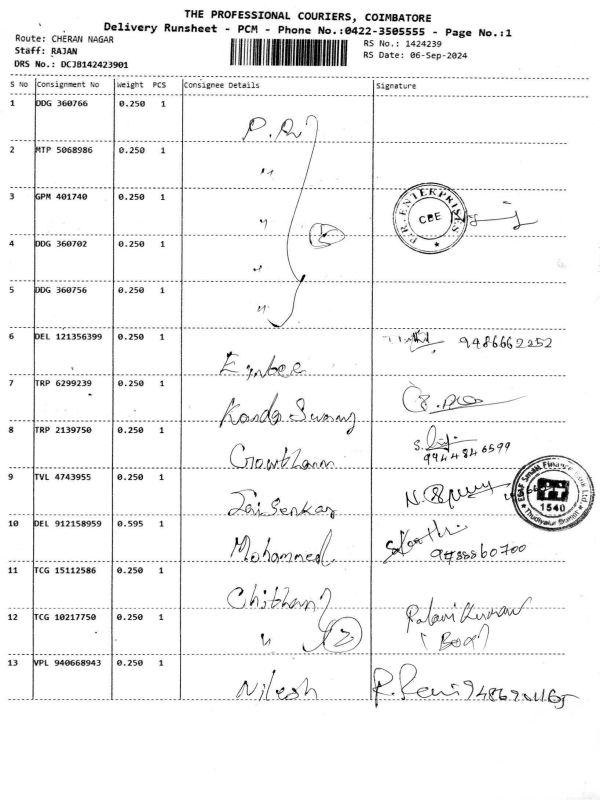 THE PROFESSIONAL COURIERS, COIMBATORE
Delivery Runsheet - PCM - Phone No.:0422-3505555 - Page No.:1
Route: CHERAN NAGAR
RS No.: 1424239
Staff: RAJAN
RS Date: 06-Sep-2024
DRS No.: DCJB142423901
S No Consignment No Weight PCS Consignee Details Signature
1 DDG 360766 0.250 1
2 MTP 5068986 0.250 1 "
3 GPM 401740 0.250 1 "
P.R. ENTERPRISES
CBE
4 DDG 360702 0.250 1 "
5 DDG 360756 0.250 1 "
6 DEL 121356399 0.250 1 9486662252
7 TRP 6299239 0.250 1 Kanda Swamy
8 TRP 2139750 0.250 1 Gowtham 9444846599
9 TVL 4743955 0.250 1 Jai Senkar
ESAF Small Finance Bank Ltd
1540
Thudiyalur Branch
10 DEL 912158959 0.595 1 Mohammed
11 TCG 15112586 0.250 1
12 TCG 10217750 0.250 1 " 2 Palani Kumar
13 VPL 940668943 0.250 1 Nilesh